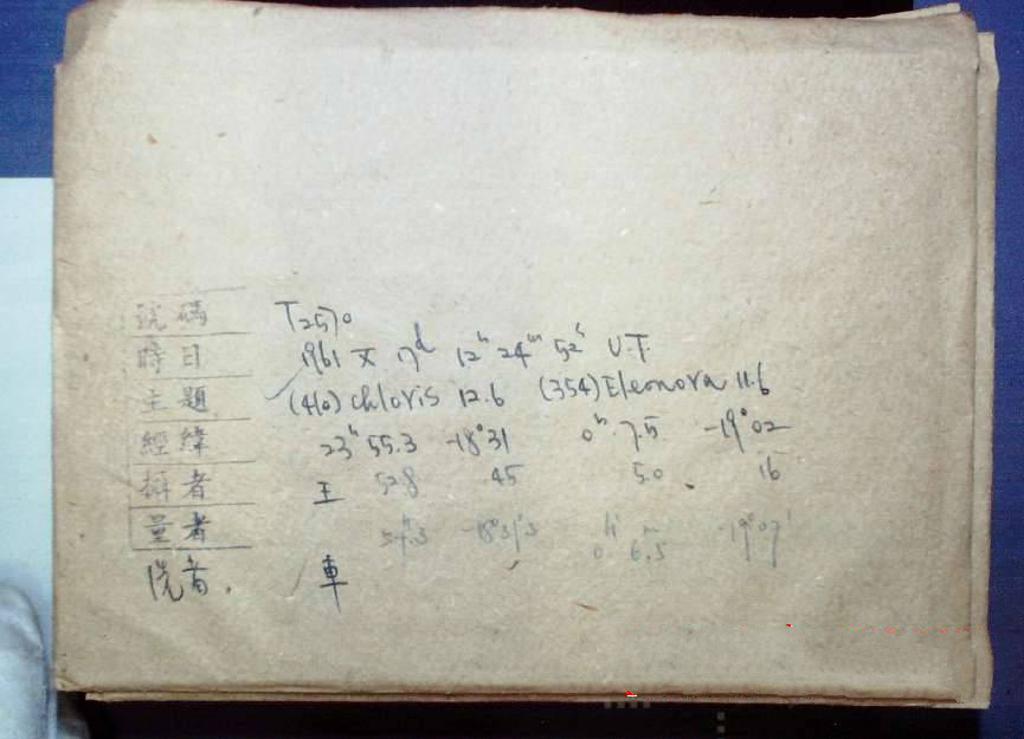 號碼 T2570
時日 1961 X 17d 12h 24m 52s U.T.
主題 (410) Chloris 12.6 (354) Eleonora 11.6
經緯 23h 55.3 -18°31 0h 7.5 -19°02
攝者 王 52.8 45 5.0 16
量者 54.3 -18°31'.3 0h 6.5m -19°07'
洗者. 車